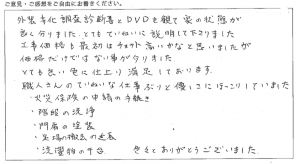 ご意見・ご感想をご自由にお書きください。
外装劣化調査診断書とDVDを観て家の状態が
良く分りました。とてもていねいに説明して下さりました
工事価格も最初はチョット高いかなと思いましたが
価格だけではない事が分りました
とても良い色に仕上り満足しております。
職人さんのていねいな仕事ぶりと優しさにほっこりしていました
・火災保険の申請の手続き
・階段の洗浄
・門扉の塗装
・足場の撤去の延長
・洗濯物の干台 色々とありがとうございました